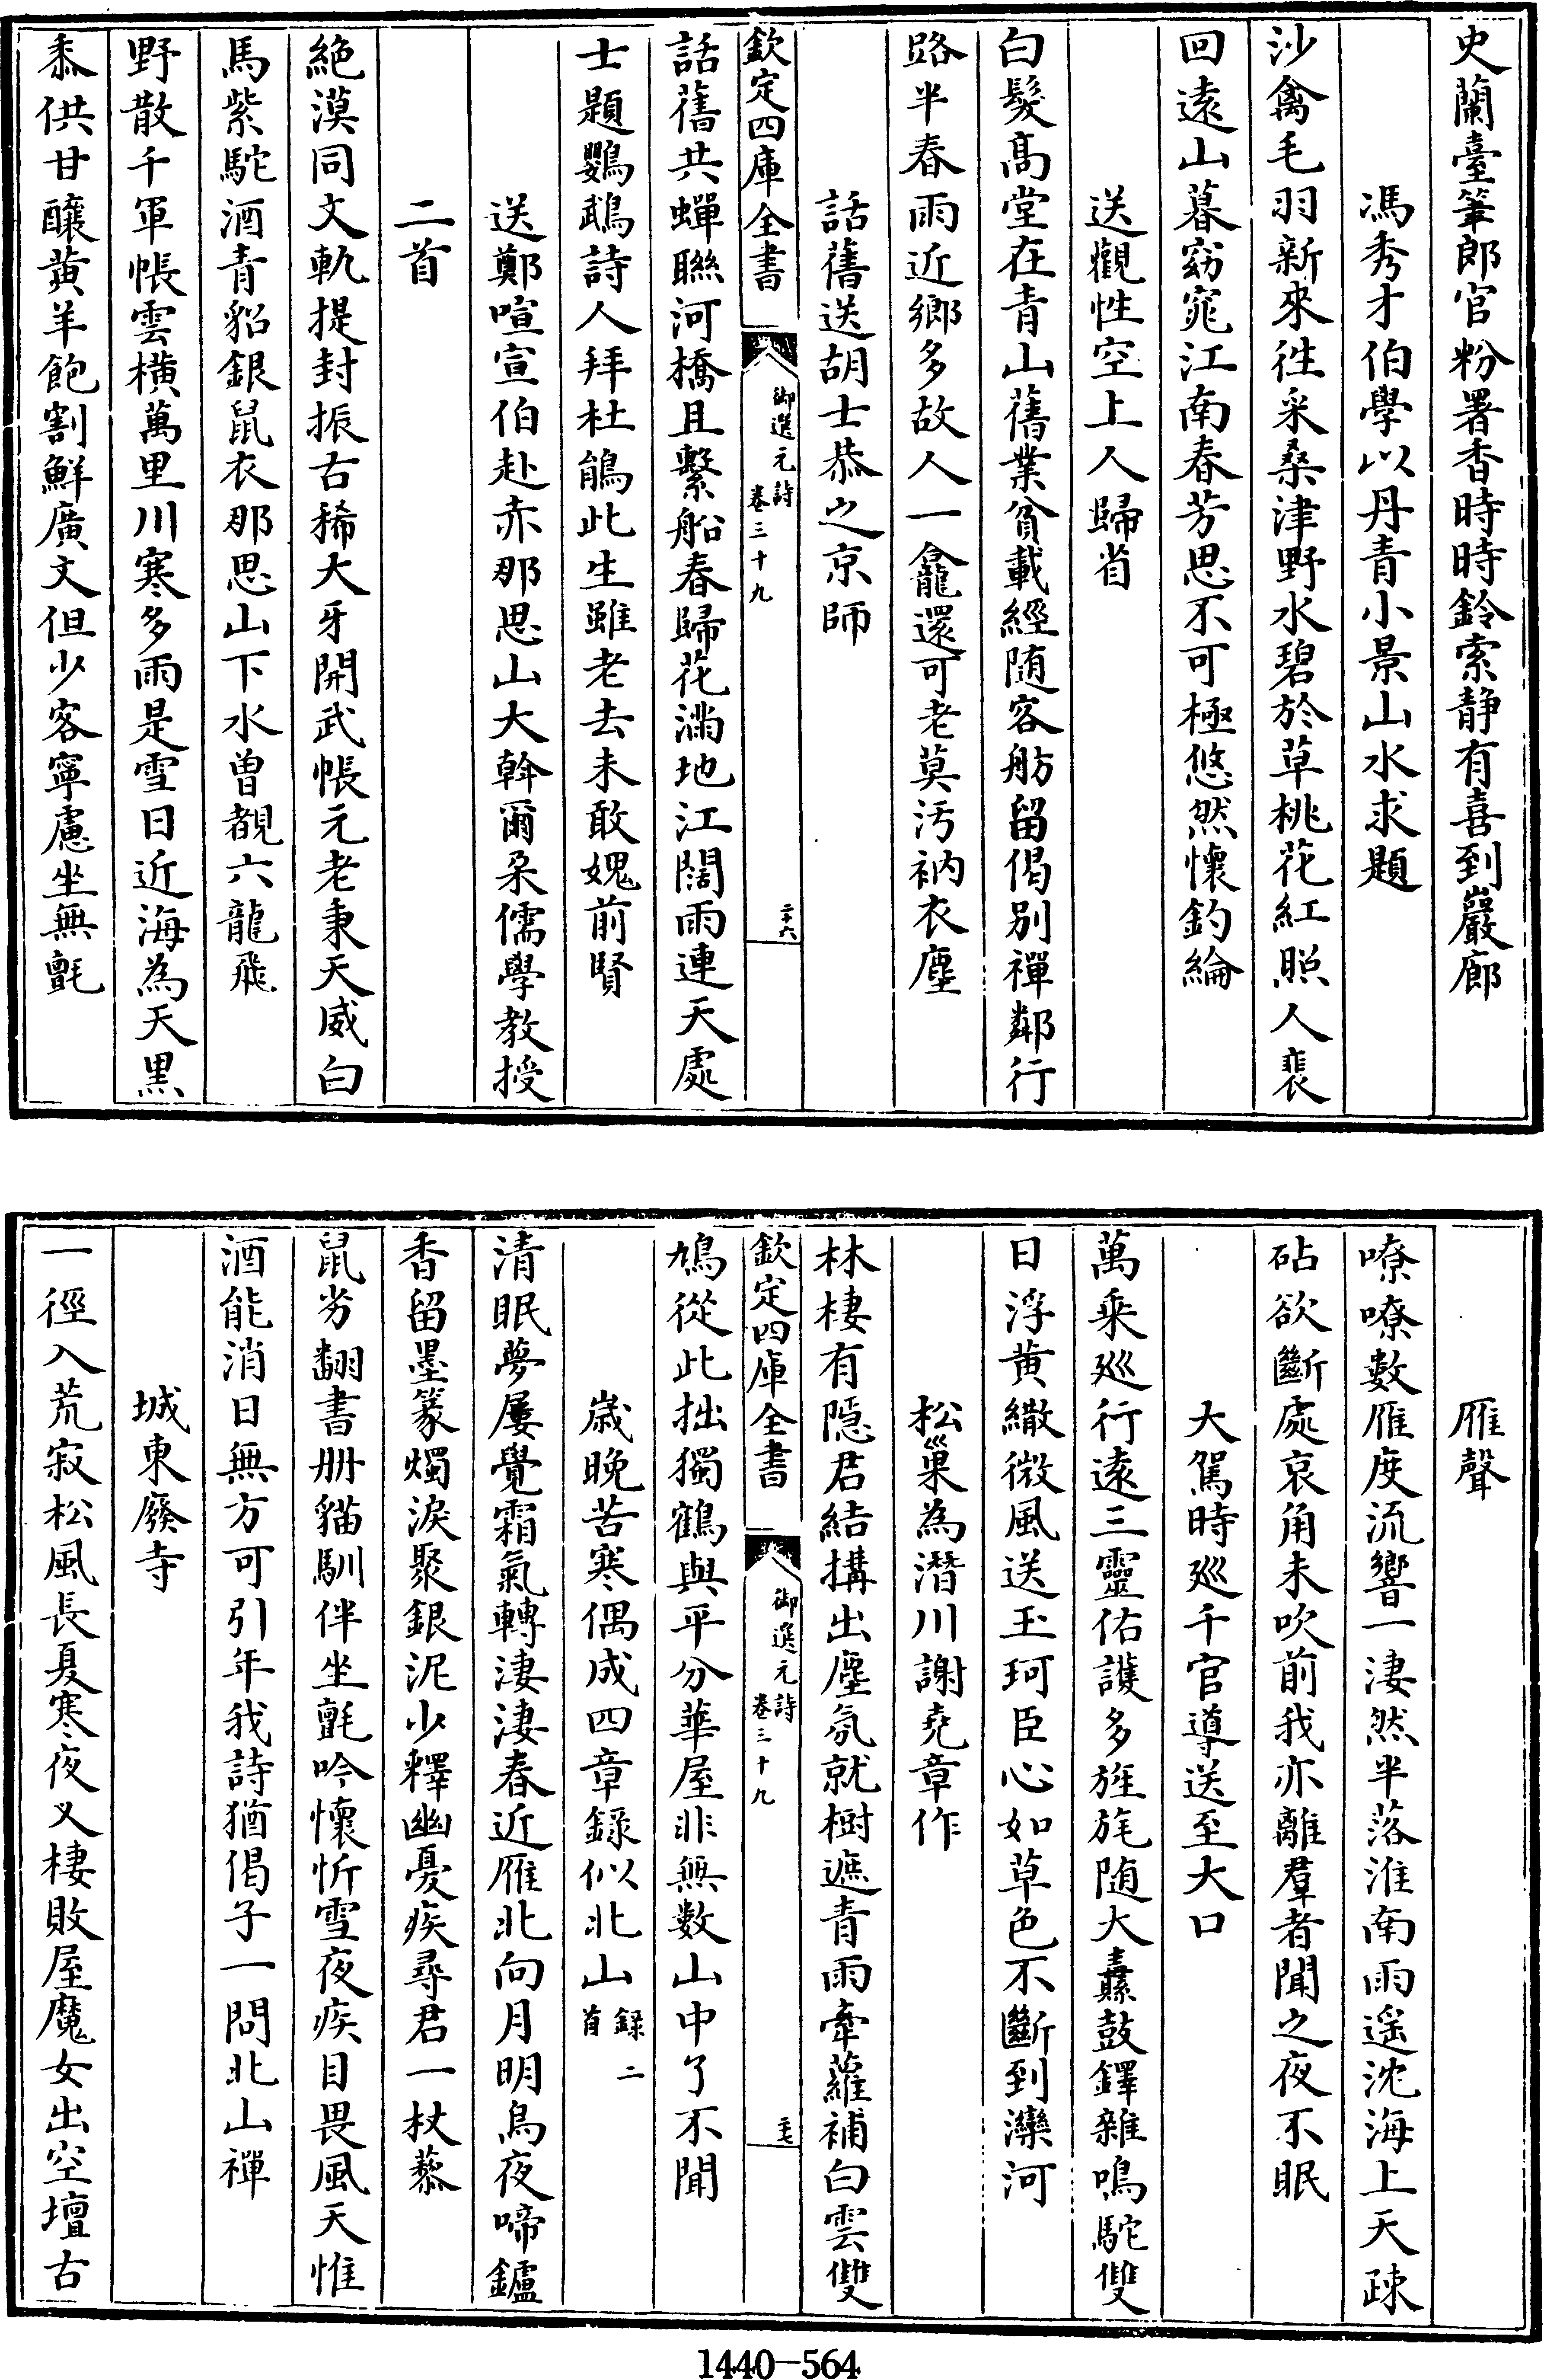 史蘭臺筆郎官粉署香時時鈴索靜有喜到巖廊
馮秀才伯學以丹青小景山水求題
沙禽毛羽新來徃采桑津野水碧於草桃花紅照人裴
回遠山暮窈窕江南春芳思不可極悠然懷釣綸
送觀性空上人歸省
白髮髙堂在青山舊業貧載經随客舫留偈别禪鄰行
路半春雨近鄉多故人一龕還可老莫汚衲衣塵
話舊送胡士恭之京師
欽定四庫全書
御選元詩
卷三十九
二十六
話舊共蟬聯河橋且繫船春歸花滿地江闊雨連天處
士題鸚鵡詩人拜杜鵑此生雖老去未敢媿前賢
送鄭喧宣伯赴赤那思山大斡爾朶儒學教授
二首
絶漠同文軌提封振古稀大牙開武帳元老秉天威白
馬紫駝酒青貂銀鼠衣那思山下水曽覩六龍飛
野散千軍帳雲横萬里川寒多雨是雪日近海為天黒
黍供甘釀黄羊飽割鮮廣文但少客寧慮坐無氈
雁聲
嘹嘹數雁度流響一淒然半落淮南雨遥沈海上天疎
砧欲斷處哀角未吹前我亦離羣者聞之夜不眠
大駕時廵千官導送至大口
萬乘廵行遠三靈佑護多旌旄随大纛鼓鐸雜鳴駝雙
日浮黄繖微風送玉珂臣心如草色不斷到灤河
松巢為潛川謝堯章作
林棲有隠君結搆出塵氛就樹遮青雨牽蘿補白雲雙
欽定四庫全書
御選元詩
卷三十九
二十七
鳩從此拙獨鶴與平分華屋非無数山中了不聞
歳晚苦寒偶成四章録似北山録二首
清眠夢屢覺霜氣轉淒淒春近雁北向月明烏夜啼鑪
香留墨篆燭淚聚銀泥少釋幽憂疾尋君一杖藜
鼠劣翻書册貓馴伴坐氈吟懷忻雪夜疾目畏風天惟
酒能消日無方可引年我詩猶偈子一問北山禪
城東廢寺
一徑入荒寂松風長夏寒夜乂棲敗屋魔女出空壇古
1440—564